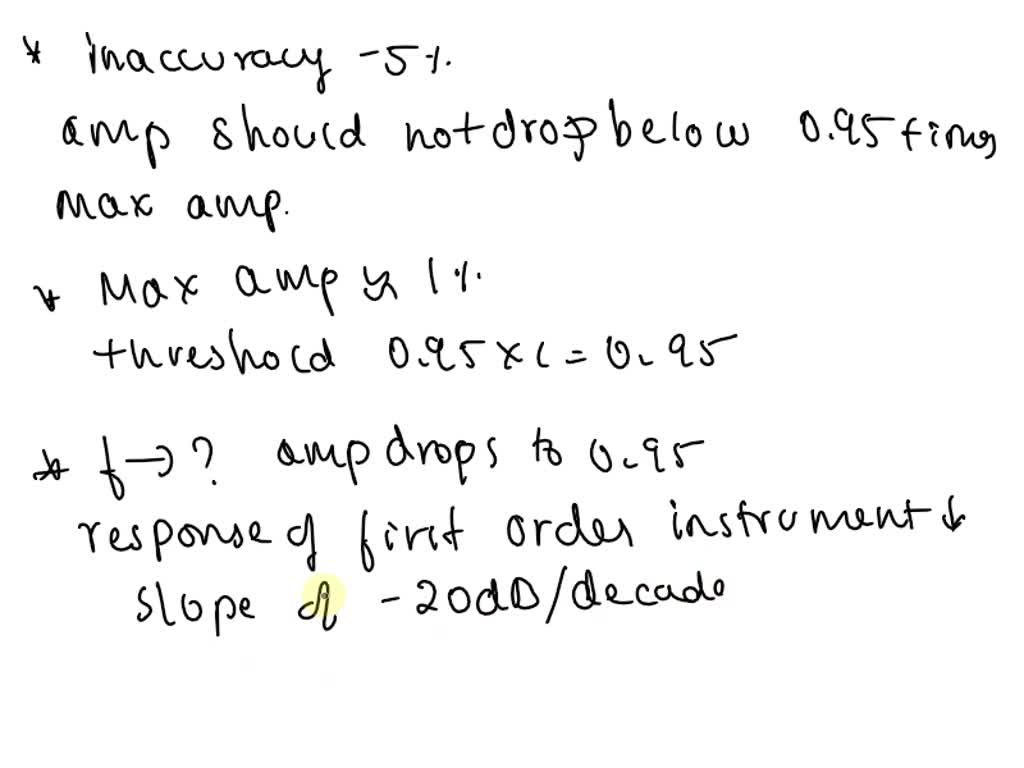 * inaccuracy -5%.
amp should not drop below 0.95 times
Max amp.
* Max amp is 1%.
threshold 0.95 x 1 = 0.95
* f → ? amp drops to 0.95
response of first order instrument ↓
slope of -20dD/decade